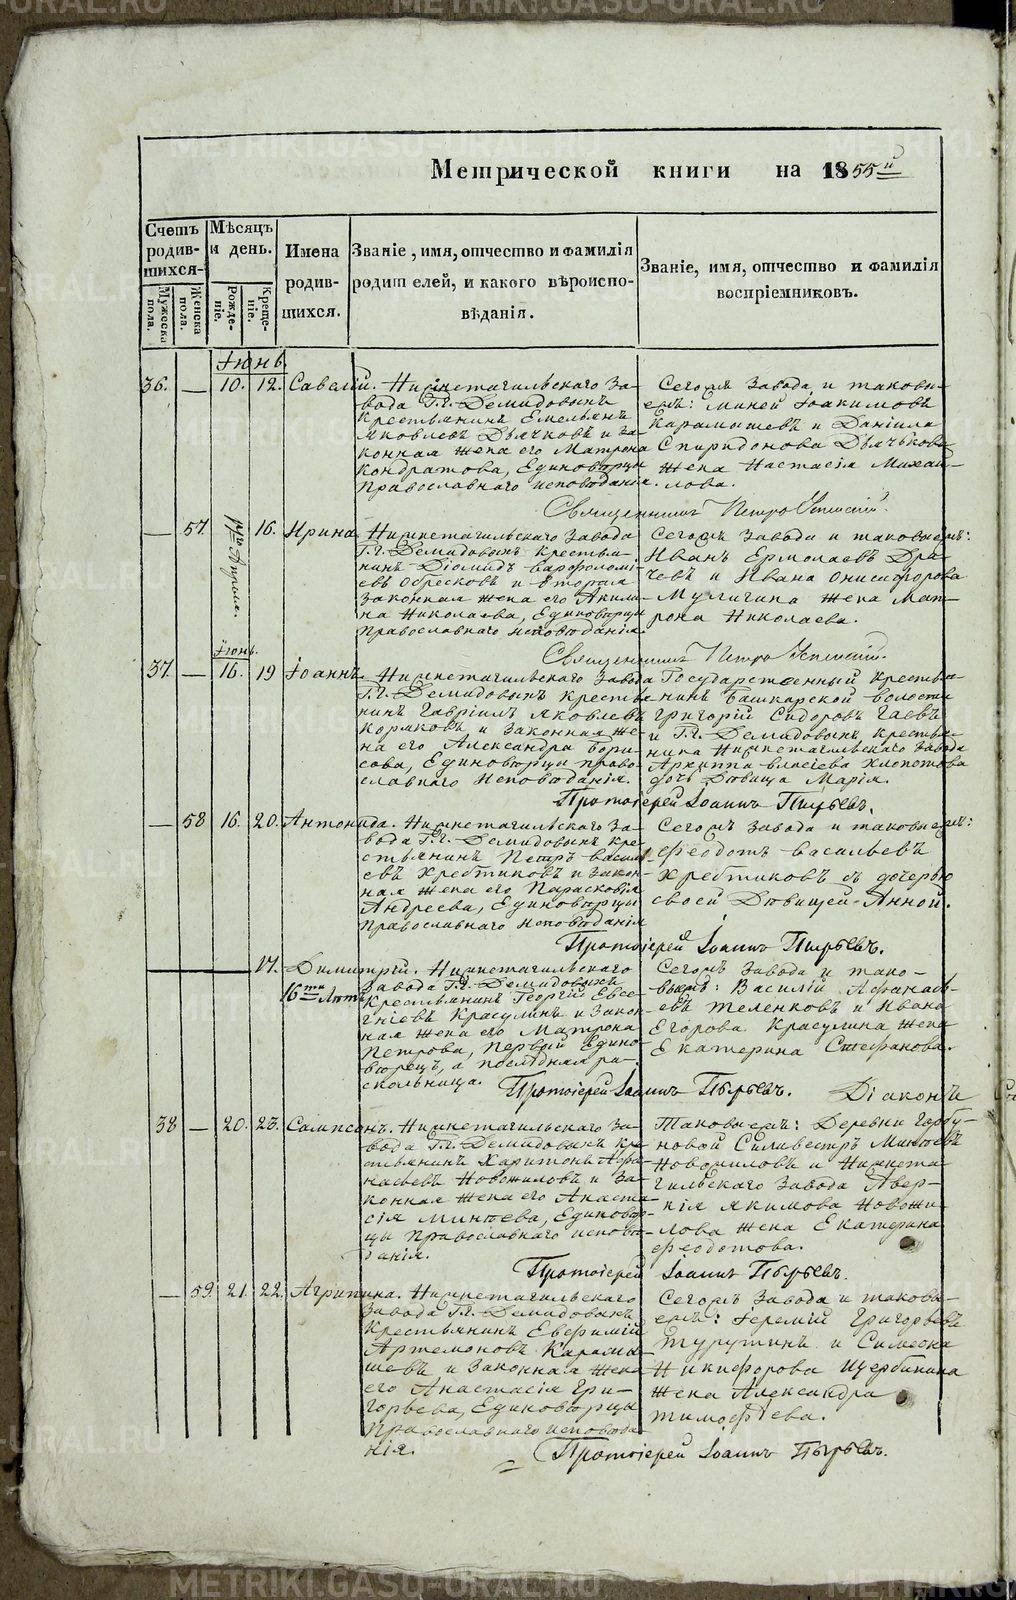 METRIKI.GASO-URAL.RU
Метрической книги на 1855й
Счетъ родив-шихся.
Мужеска пола.
Женска пола.
Мѣсяцъ и день.
Рожде-ніе.
Креще-ніе.
Имена родив-шихся.
Званіе, имя, отчество и фамилія
родителей, и какого вѣроиспо-
вѣданія.
Званіе, имя, отчество и фамилія
воспріемниковъ.
Іюнь.
36. — 10. 12. Савелій. Нижнетагильскаго За-
вода Г.г. Демидовыхъ
крестьянинъ Емельянъ
Яковлевъ Дьячковъ и за-
конная жена его Матрона
Кондратова, Единовѣрцы
Православнаго исповѣданія.
Сегожъ завода и таковы-
ежъ: Миней Іоакимовъ
Карамышевъ и Даніила
Спиридонова Дьячькова
жена Настасія Михай-
лова.
Священникъ Петръ Успенскій.
— 57. Апрѣля. 16. Ирина. Нижнетагильскаго Завода
Г.г. Демидовыхъ крестья-
нинъ Діомидъ Варфоломі-
евъ Обресковъ и вторая
законная жена его Акили-
на Николаева, Единовѣрцы
Православнаго исповѣданія.
Сегожъ завода и таковыежъ:
Иванъ Ермолаевъ Дра-
чевъ и Ивана Онисифорова
Мулигина жена Мат-
рона Николаева.
Священникъ Петръ Успенскій.
Іюнь.
37. — 16. 19 Іоаннъ. Нижнетагильскаго Завода
Г.г. Демидовыхъ крестья-
нинъ Гавріилъ Яковлевъ
Кормковъ и законная же-
на его Александра Бори-
сова, Единовѣрцы право-
славнаго исповѣданія.
Государственный крестья-
нинъ Башкарской волости
Григорій Сидоровъ Гаевъ
и Г.г. Демидовыхъ крестья-
нина Нижнетагильскаго завода
Архиппа Власіева Хлопотова
дочь Дѣвица Марія.
Протоіерей Іоаннъ Пырьевъ.
— 58 16. 20. Антонида. Нижнетагильскаго За-
вода Г.г. Демидовыхъ кре-
стьянинъ Петръ Василь-
евъ Хребтиковъ и закон-
ная жена его Парасковія
Андреева, Единовѣрцы
Православнаго исповѣданія
Сегожъ завода и таковыежъ:
Феодотъ Васильевъ
Хребтиковъ съ дочерью
своей Дѣвицей Анной.
Протоіерей Іоаннъ Пырьевъ.
17. Димитрій. Нижнетагильскаго
16ти лѣтъ
Завода Г.г. Демидовыхъ
крестьянинъ Георгій Евсе-
гніевъ Красулинъ и закон-
ная жена его Матрона
Петрова, первый Едино-
вѣрецъ, а послѣдняя ра-
скольница.
Сегожъ завода и тако-
выежъ: Василій Афанась-
евъ Теленковъ и Ивана
Егорова Красулина жена
Екатерина Стефанова.
Протоіерей Іоаннъ Пырьевъ. Діаконъ
38 — 20. 23. Сампсонъ. Нижнетагильскаго За-
вода Г.г. Демидовыхъ кре-
стьянинъ Харитонъ Афа-
насьевъ Новожиловъ и за-
конная жена его Анаста-
сія Минѣева, Единовѣр-
цы Православнаго исповѣ-
данія.
Таковыежъ: Деревни Горбу-
новой Силивестръ Минѣевъ
Новожиловъ и Нижнета-
гильскаго завода Авер-
кія Якимова Новожи-
лова жена Екатерина
Феодотова.
Протоіерей Іоаннъ Пырьевъ.
— 59. 21. 22. Агрипина. Нижнетагильскаго
Завода Г.г. Демидовыхъ
крестьянинъ Евфимій
Артемоновъ Карамы-
шевъ и законная жена
его Анастасія Гри-
горьева, Единовѣрцы
Православнаго исповѣда-
нія.
Сегожъ завода и таковы-
ежъ: Іеремій Григорьевъ
Турутинъ и Симеона
Никифорова Щербинина
жена Александра
Тимофѣева.
Протоіерей Іоаннъ Пырьевъ.